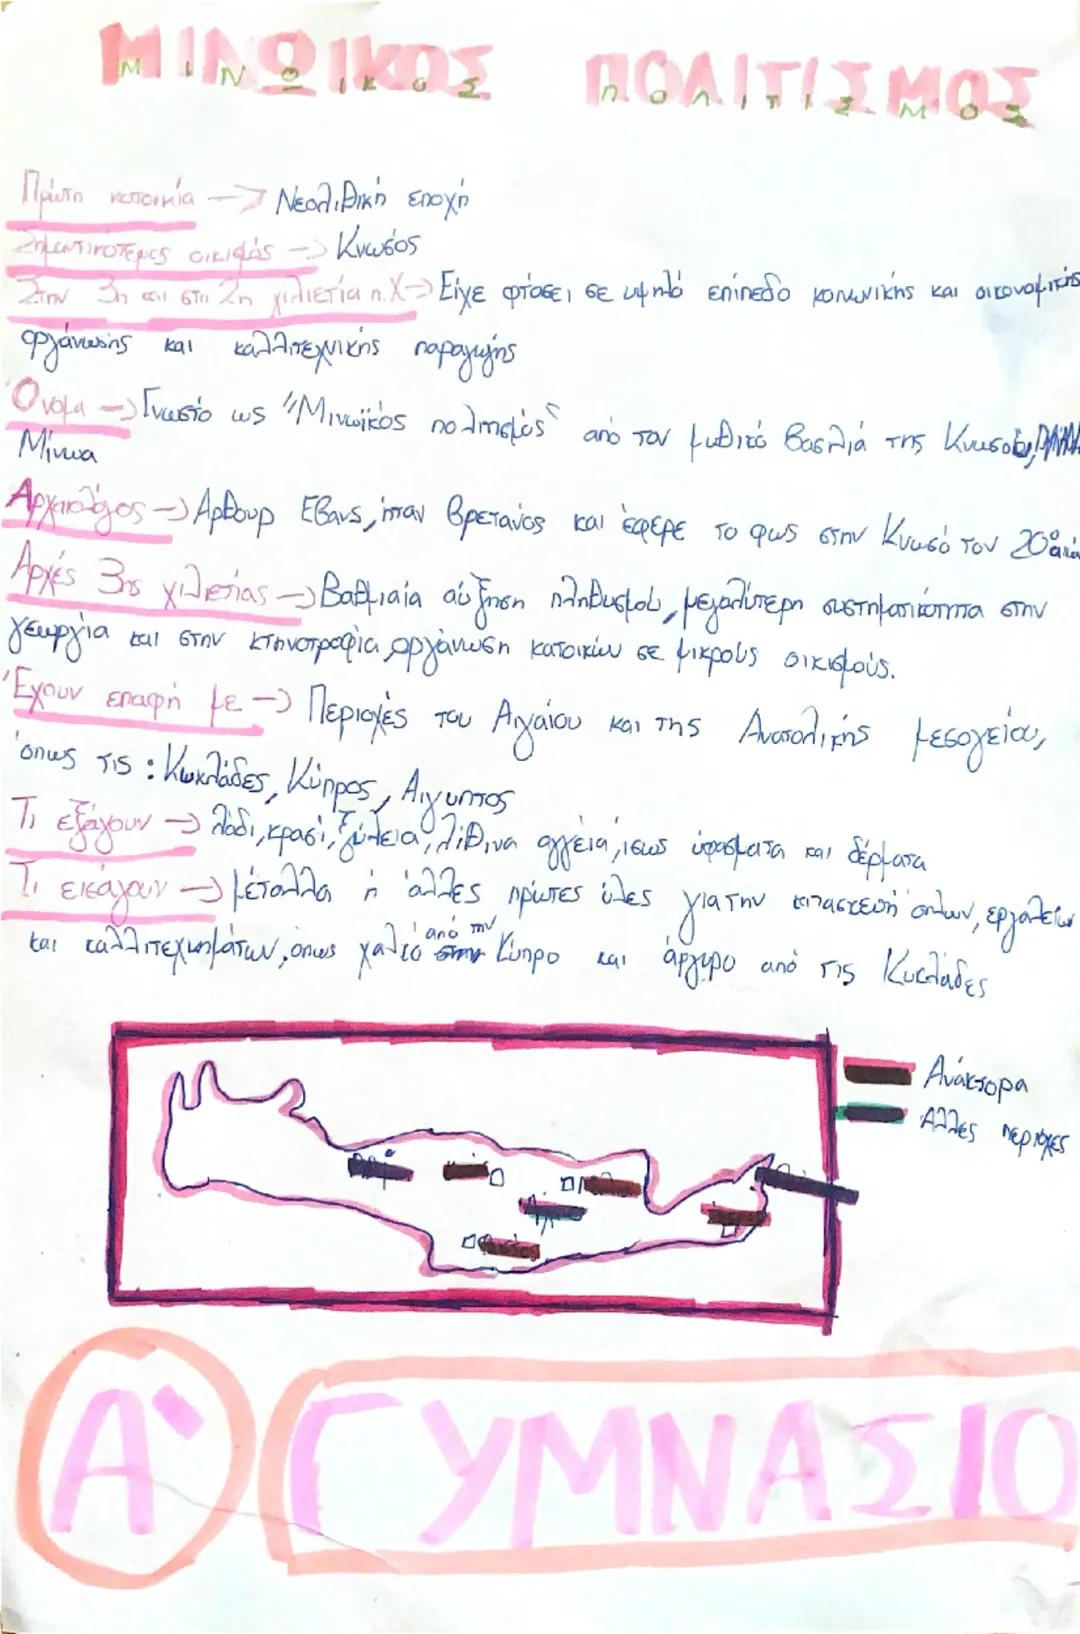 ΜΙΝΩΙΚΟΣ ΠΟΛΙΤΙΣΜΟΣ
Πρώτη κατοικία → Νεολιθική εποχή
Σημαντικότερος οικισμός → Κνωσός
Στην 3η και στη 2η χιλιετία π.Χ → Είχε φτάσει σε υψηλό επίπεδο κοινωνικής και οικονομικής
οργάνωσης και καλλιτεχνικής παραγωγής
Όνομα → Γνωστό ως "Μινωϊκός πολιτισμός" από τον μυθικό βασιλιά της Κνωσού,
Μίνωα
Αρχαιολόγος → Αρθουρ Εβανς, ήταν Βρετανός και έφερε το φως στην Κνωσό τον 20ο αιώ
Αρχές 3ης χιλιετίας → Βαθμιαία αύξηση πληθυσμού, μεγαλύτερη συστηματικότητα στην
γεωργία και στην κτηνοτροφία, οργάνωση κατοικιών σε μικρούς οικισμούς.
Έχουν επαφή με → Περιοχές του Αιγαίου και της Ανατολικής μεσογείου,
όπως τις : Κωκλάδες, Κύπρος, Αιγυπτος
Τι εξάγουν → λάδι, κρασί, ξύλεια, λίθινα αγγεία, ισως ύφασματα και δέρματα
Τι εισάγουν → μέταλλα ή άλλες πρώτες ύλες για την κατασκευή όπλων, εργαλείων
και καλλιτεχνημάτων, όπως χαλκό από την Κύπρο και άργυρο από τις Κυκλάδες
Ανάκτορα
Αλλες περιοχές
Α' ΓΥΜΝΑΣΙΟ